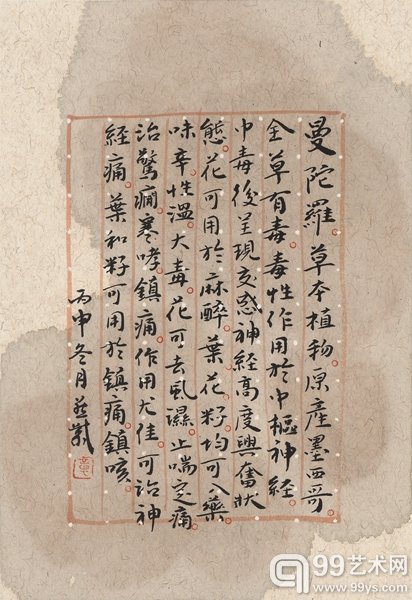 曼陀羅。草本植物。原產墨西哥。
全草有毒。毒性作用於中樞神經。
中毒後呈現交感神經高度興奮狀
態。花可用於麻醉。葉花籽均可入藥。
味辛性溫。大毒。花可去風濕。止喘定痛。
治驚癇寒哮。鎮痛作用尤佳。可治神
經痛。葉和籽可用於鎮痛鎮咳。
丙申冬月
99艺术网
www.99ys.com